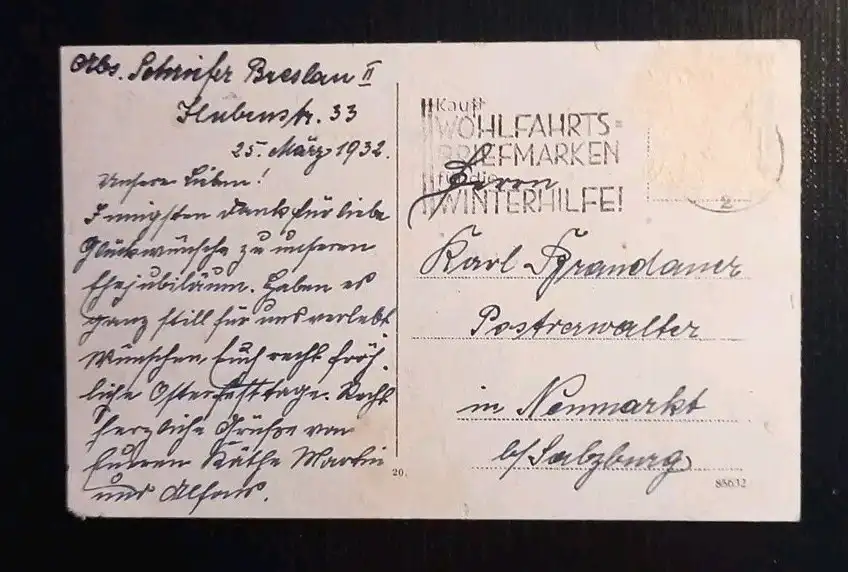 Abs. Schriefer Breslau II
Hubenstr. 33
25. März 1932.
Unsere Lieben!
Innigsten Dank für liebe
Glückwünsche zu unseren
Ehejubiläum. Haben es
ganz still für uns verlebt
Wünschen Euch recht fröh-
liche Osterfesttage. Recht
herzliche Grüße von
Euren Käthe Martin
und Alfons.
20.
Kauft
WOHLFAHRTS-
BRIEFMARKEN
für die
WINTERHILFE!
2
Herrn
Karl
Postverwalter
in Neumarkt
b/Salzburg
88632